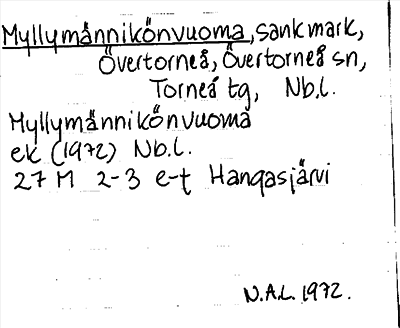 Myllymännikönvuoma, sankmark,
Övertorneå, Övertorneå sn,
Torneå tg, Nb.l.
Myllymännikönvuoma
ek (1972) Nb.l.
27 M 2-3 e-f Hangasjärvi
N.A.L. 1972.